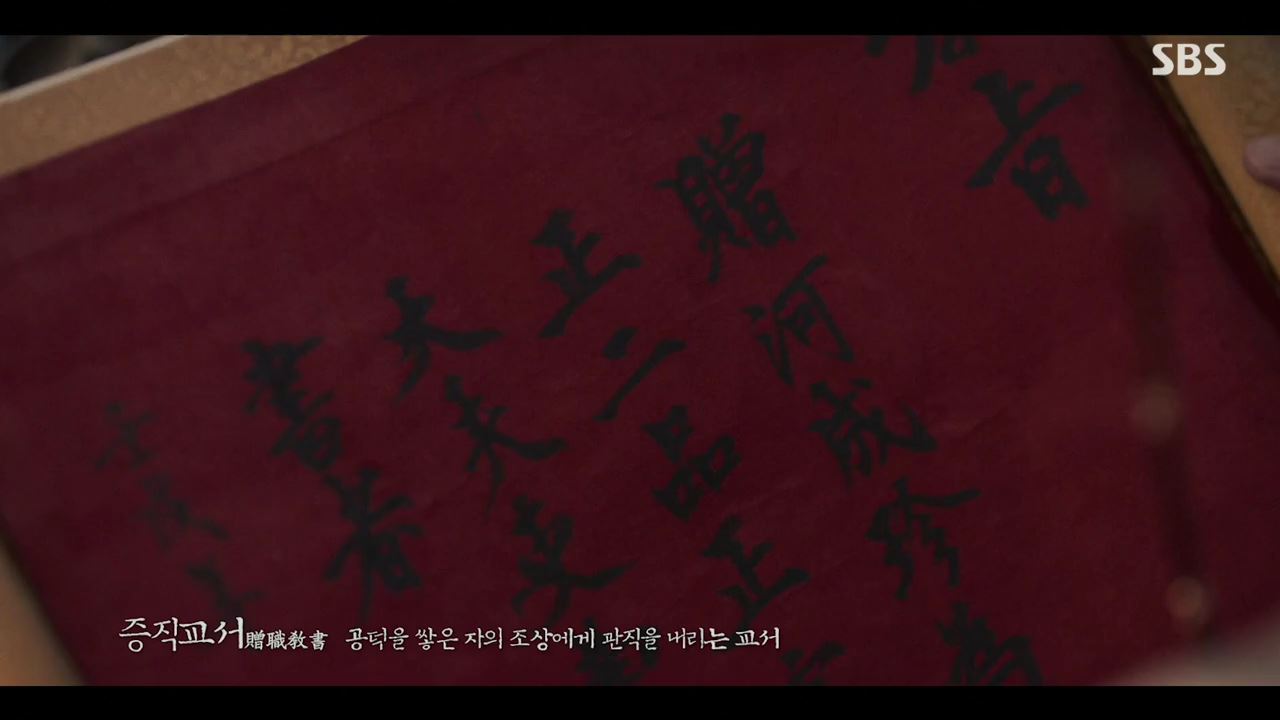 SBS
旨
贈河成珍爲
正二品正
大夫吏
書者
증직교서 贈職敎書 공덕을 쌓은 자의 조상에게 관직을 내리는 교서